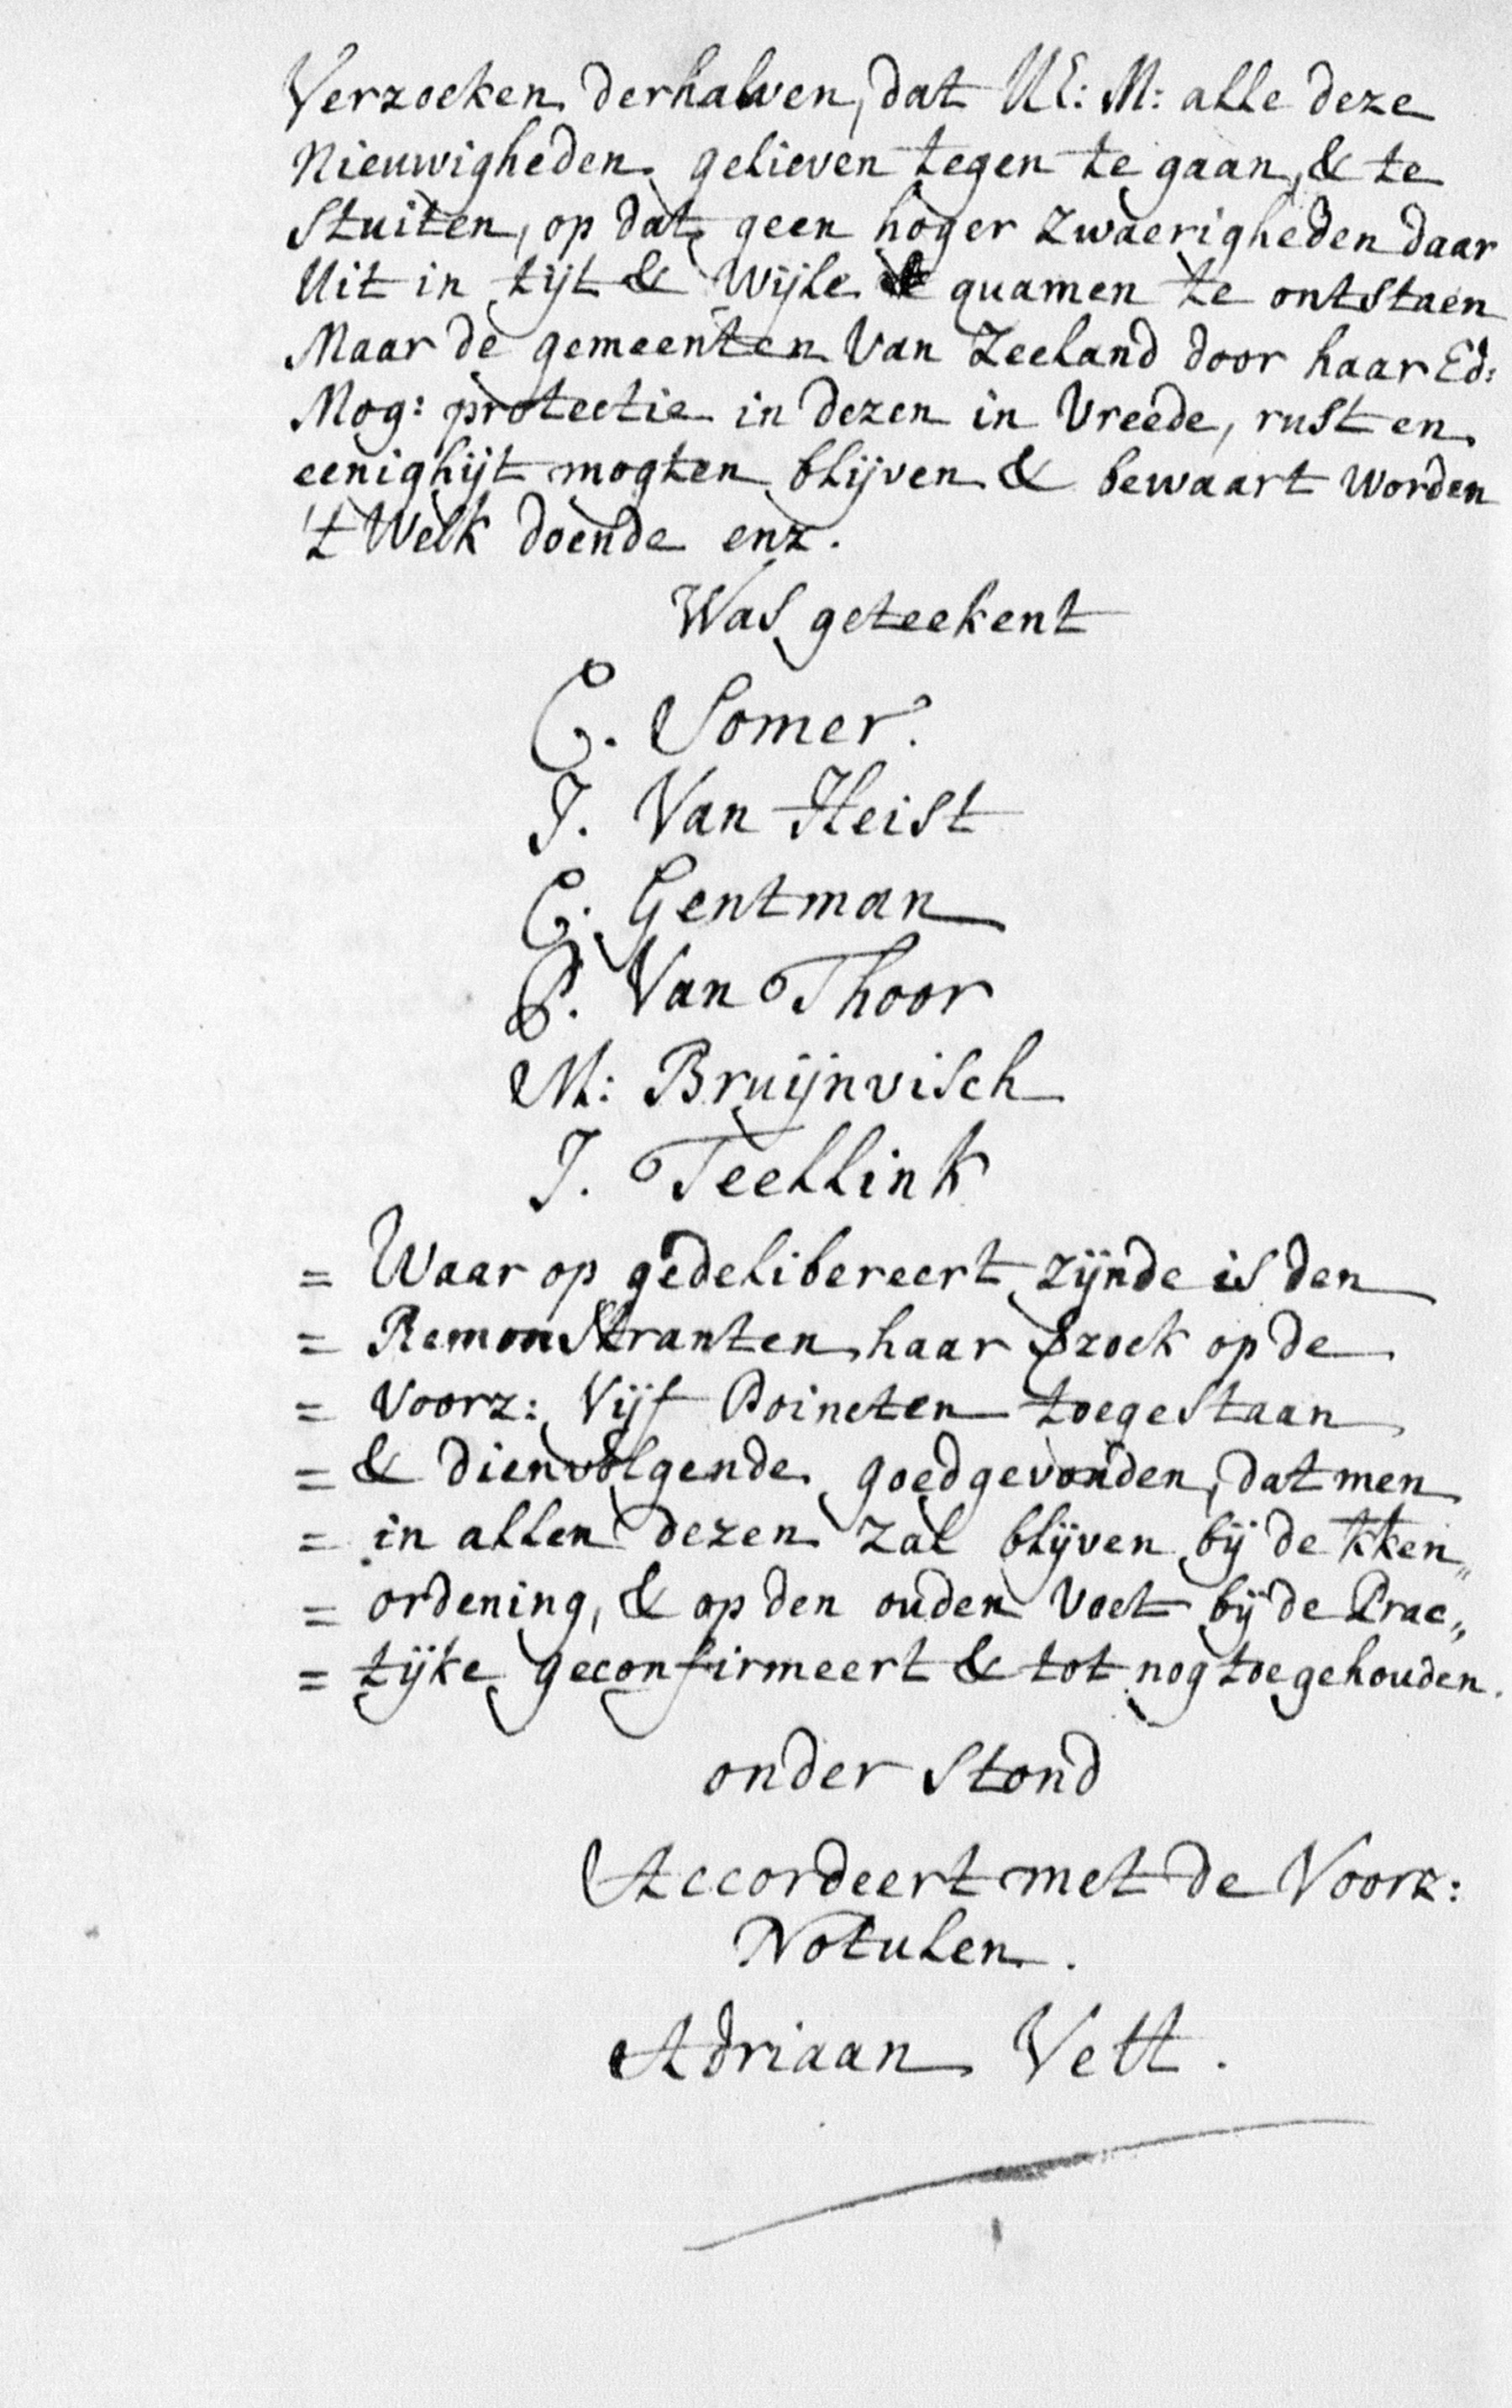 Verzoeken derhalven, dat UE: M: alle deze
Nieuwigheden gelieven tegen te gaan, & te
Stuiten, op dat geen hoger zwaerigheden daar
Uit in tijt & Wijle quamen te ontstaen
Maar de gemeenten Van Zeeland door haar Ed:
Mog: protectie in dezen in Vreede, rust en
eenighijt mogten blijven & bewaart worden
't Welk doende enz.
Was geteekent
C. Somer.
J. Van Heist
C. Gentman
P. Van Thoor
M: Bruijnvisch
J. Teellink
= Waar op gedelibereert zijnde is den
= Remonstranten haar &zoek op de
= Voorz: Vijf Poincten toegestaan
= & dienvolgende goedgevonden, dat men
= in allen dezen zal blijven bij de kken„
= ordening, & op den ouden Voet bij de Prac„
= tijke geconfirmeert & tot nog toe gehouden.
onder stond
Accordeert met de Voorz:
Notulen.
Adriaan Vett.